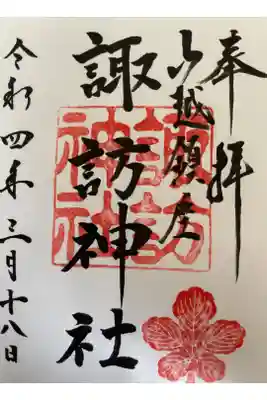 奉拝
山越鎮座
諏訪神社
令和四年三月十八日
諏訪
神社